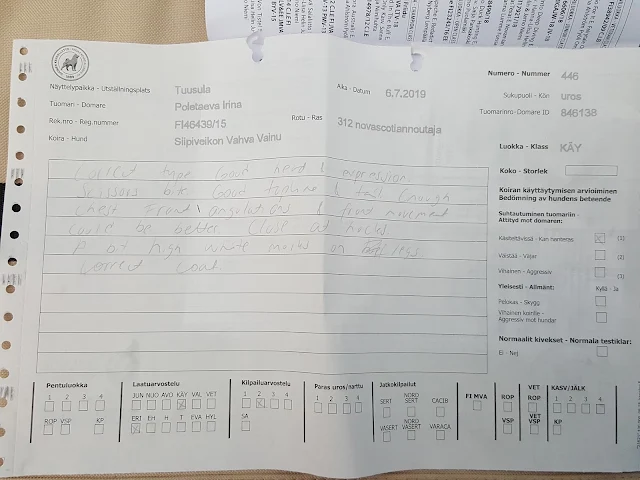 Näyttelypaikka - Utställningsplats Tuusula
Tuoman - Domare Poletaeva Irina
Rek.nro - Reg.nummer FI46439/15
Koira - Hund Siipiveikon Vahva Vainu
Aika - Datum 6.7.2019
Rotu - Ras 312 novascotiannoutaja
Numero - Nummer 446
Sukupuoli - Kön uros
Tuomarinro - Domare ID 846138
Luokka - Klass KÄY
Koko - Storlek
Correct type Good head & expression
Scissors bite Good topline & tail Enough
chest Front angulations & front movement
could be better. Close at hocks
A bit high white marks on legs
Correct coat
Koiran käyttäytymisen arvioiminen
Bedömning av hundens beteende
Suhtautuminen tuomariin -
Attityd mot domaren:
Käsiteltävissä - Kan hanteras (1)
Väistää - Väjer (2)
Vihainen - Aggressiv (3)
Yleisesti - Allmänt: Kyllä - Ja
Pelokas - Skygg
Vihainen koirille -
Aggressiv mot hundar
Normaalit kivekset - Normala testiklar:
Ei - Nej
Pentuluokka
1 2 3 4
ROP VSP KP
Laatuarvostelu
JUN NUO AVO KÄY VAL VET
ERI EH H T EVA HYL
Kilpailuarvostelu
1 2 3 4
SA
Paras uros/narttu
1 2 3 4
Jatkokilpailut
SERT NORD SERT CACIB
VASERT NORD VASERT VARACA
FI MVA
ROP
VSP
VET ROP
VET VSP
KASV/JÄLK
1 2 3 4
KP